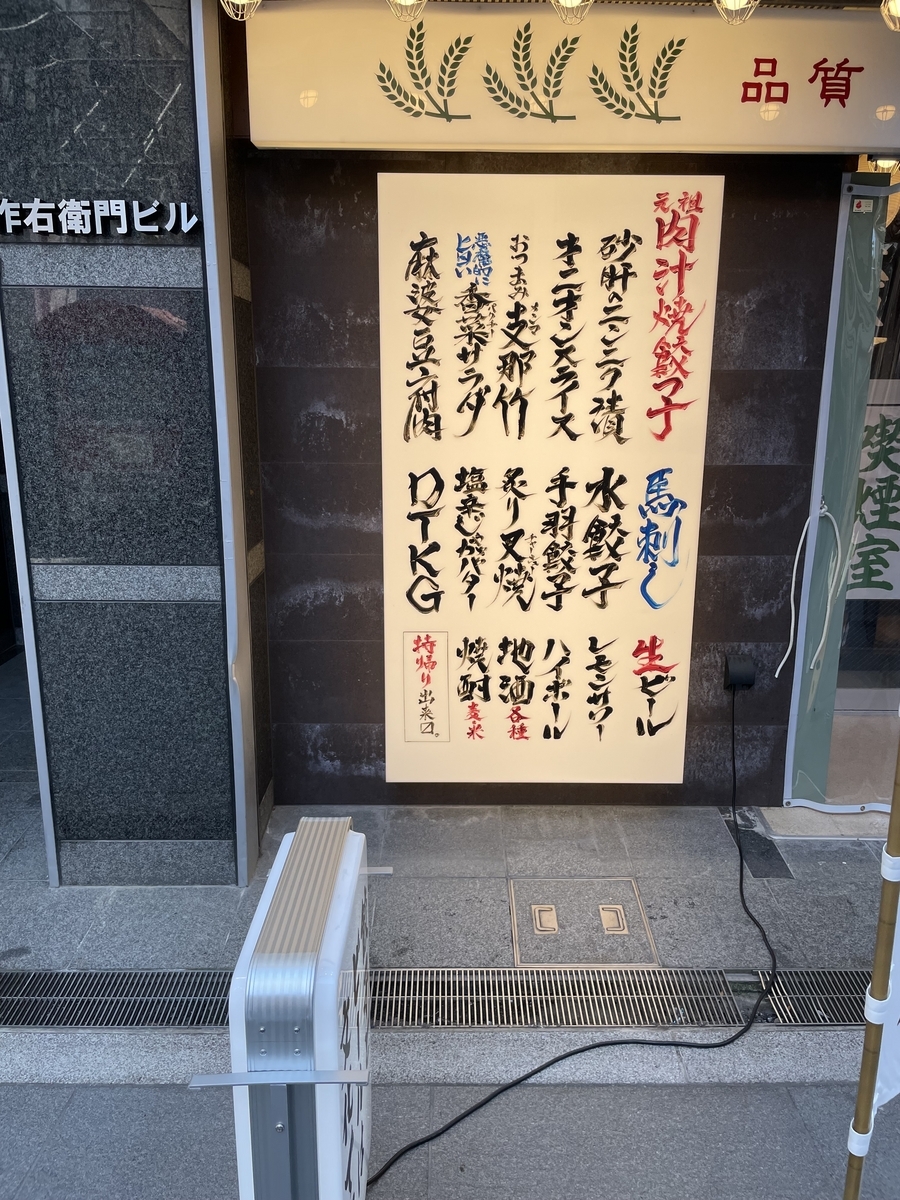 品質
作右衛門ビル
元祖
肉汁焼餃子
砂肝のニンニク漬
オニオンスライス
おつまみ支那竹
メンマ
悪魔的に旨い
香菜サラダ
パクチー
麻婆豆腐肉
馬刺し
水餃子
手羽餃子
炙り叉焼
チャーシュー
塩辛じゃがバター
DTKG
生ビール
レモンサワー
ハイボール
地酒各種
焼酎麦・米
持帰り出来〼。
喫煙室